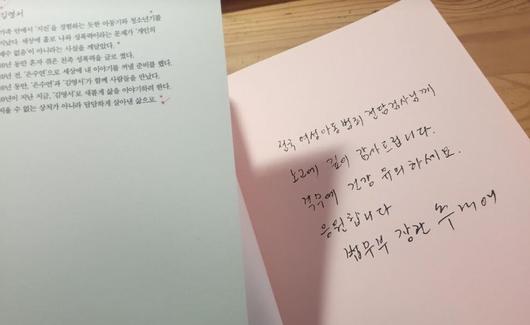 김영서
가족 안에서 '지진'을 경험하는 듯한 아동기와 청소년기를
지났다. 세상에 홀로 나와 성폭력이라는 문제가 '개인의
재수 없음'이 아니라는 사실을 깨달았다.
동안 혼자 겪은 친족 성폭력을 글로 썼다.
년 전, '은수연'으로 세상에 내 이야기를 꺼낼 준비를 했다.
년 동안, '은수연'과 '김영서'가 함께 사람들을 만났다.
년이 지난 지금, '김영서'로 새롭게 삶을 이야기하려 한다.
지울 수 없는 상처가 아니라 담담하게 살아낸 삶으로.
전국 여성아동범죄 전담검사님께
노고에 깊이 감사드립니다.
격무에 건강 유의 하세요.
응원합니다
법무부 장관 추미애